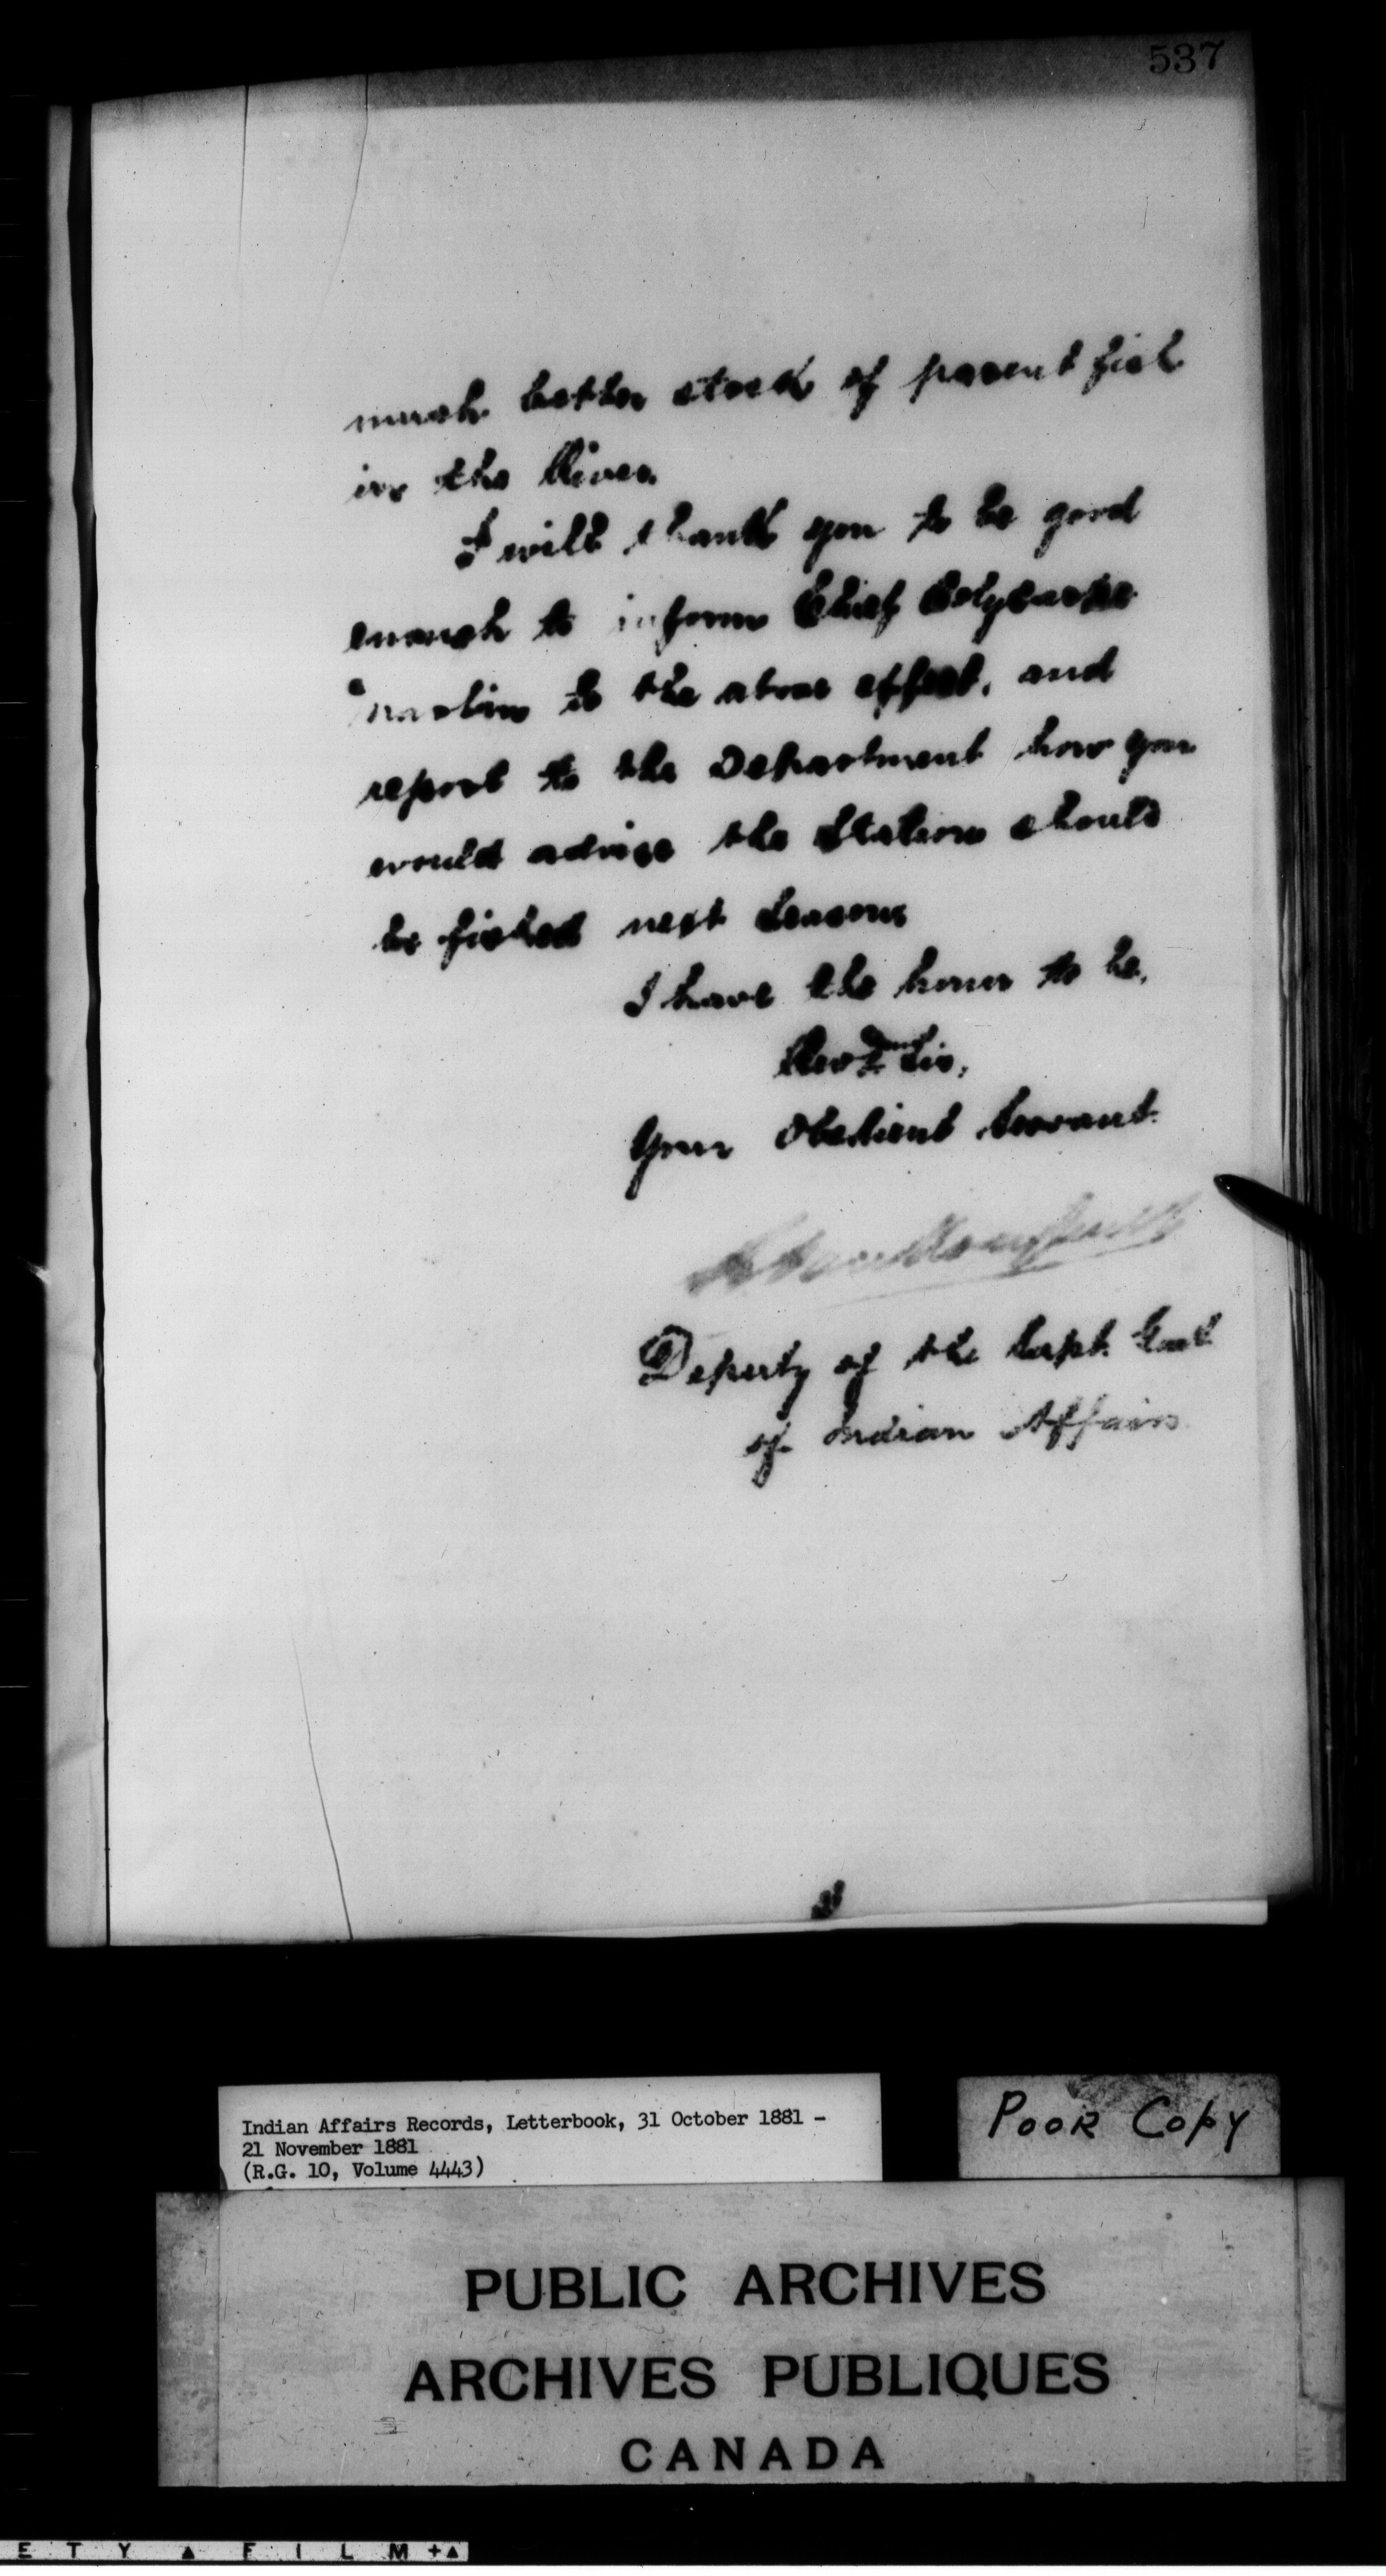 537
much better stock of parent fish
in the River.
I will thank you to be good
enough to inform Chief Polycarpe
Martin to the above effect, and
report to the Department how you
would advise the Station should
be fished next Season
I have the honor to be,
Revd and Sir,
Your Obedient Servant.
Deputy of the Supt. Genl
of Indian Affairs
Indian Affairs Records, Letterbook, 31 October 1881 -
21 November 1881
(R.G. 10, Volume 4443)
POOR COPY
PUBLIC ARCHIVES
ARCHIVES PUBLIQUES
CANADA
E T Y ▲ F I L M +▲